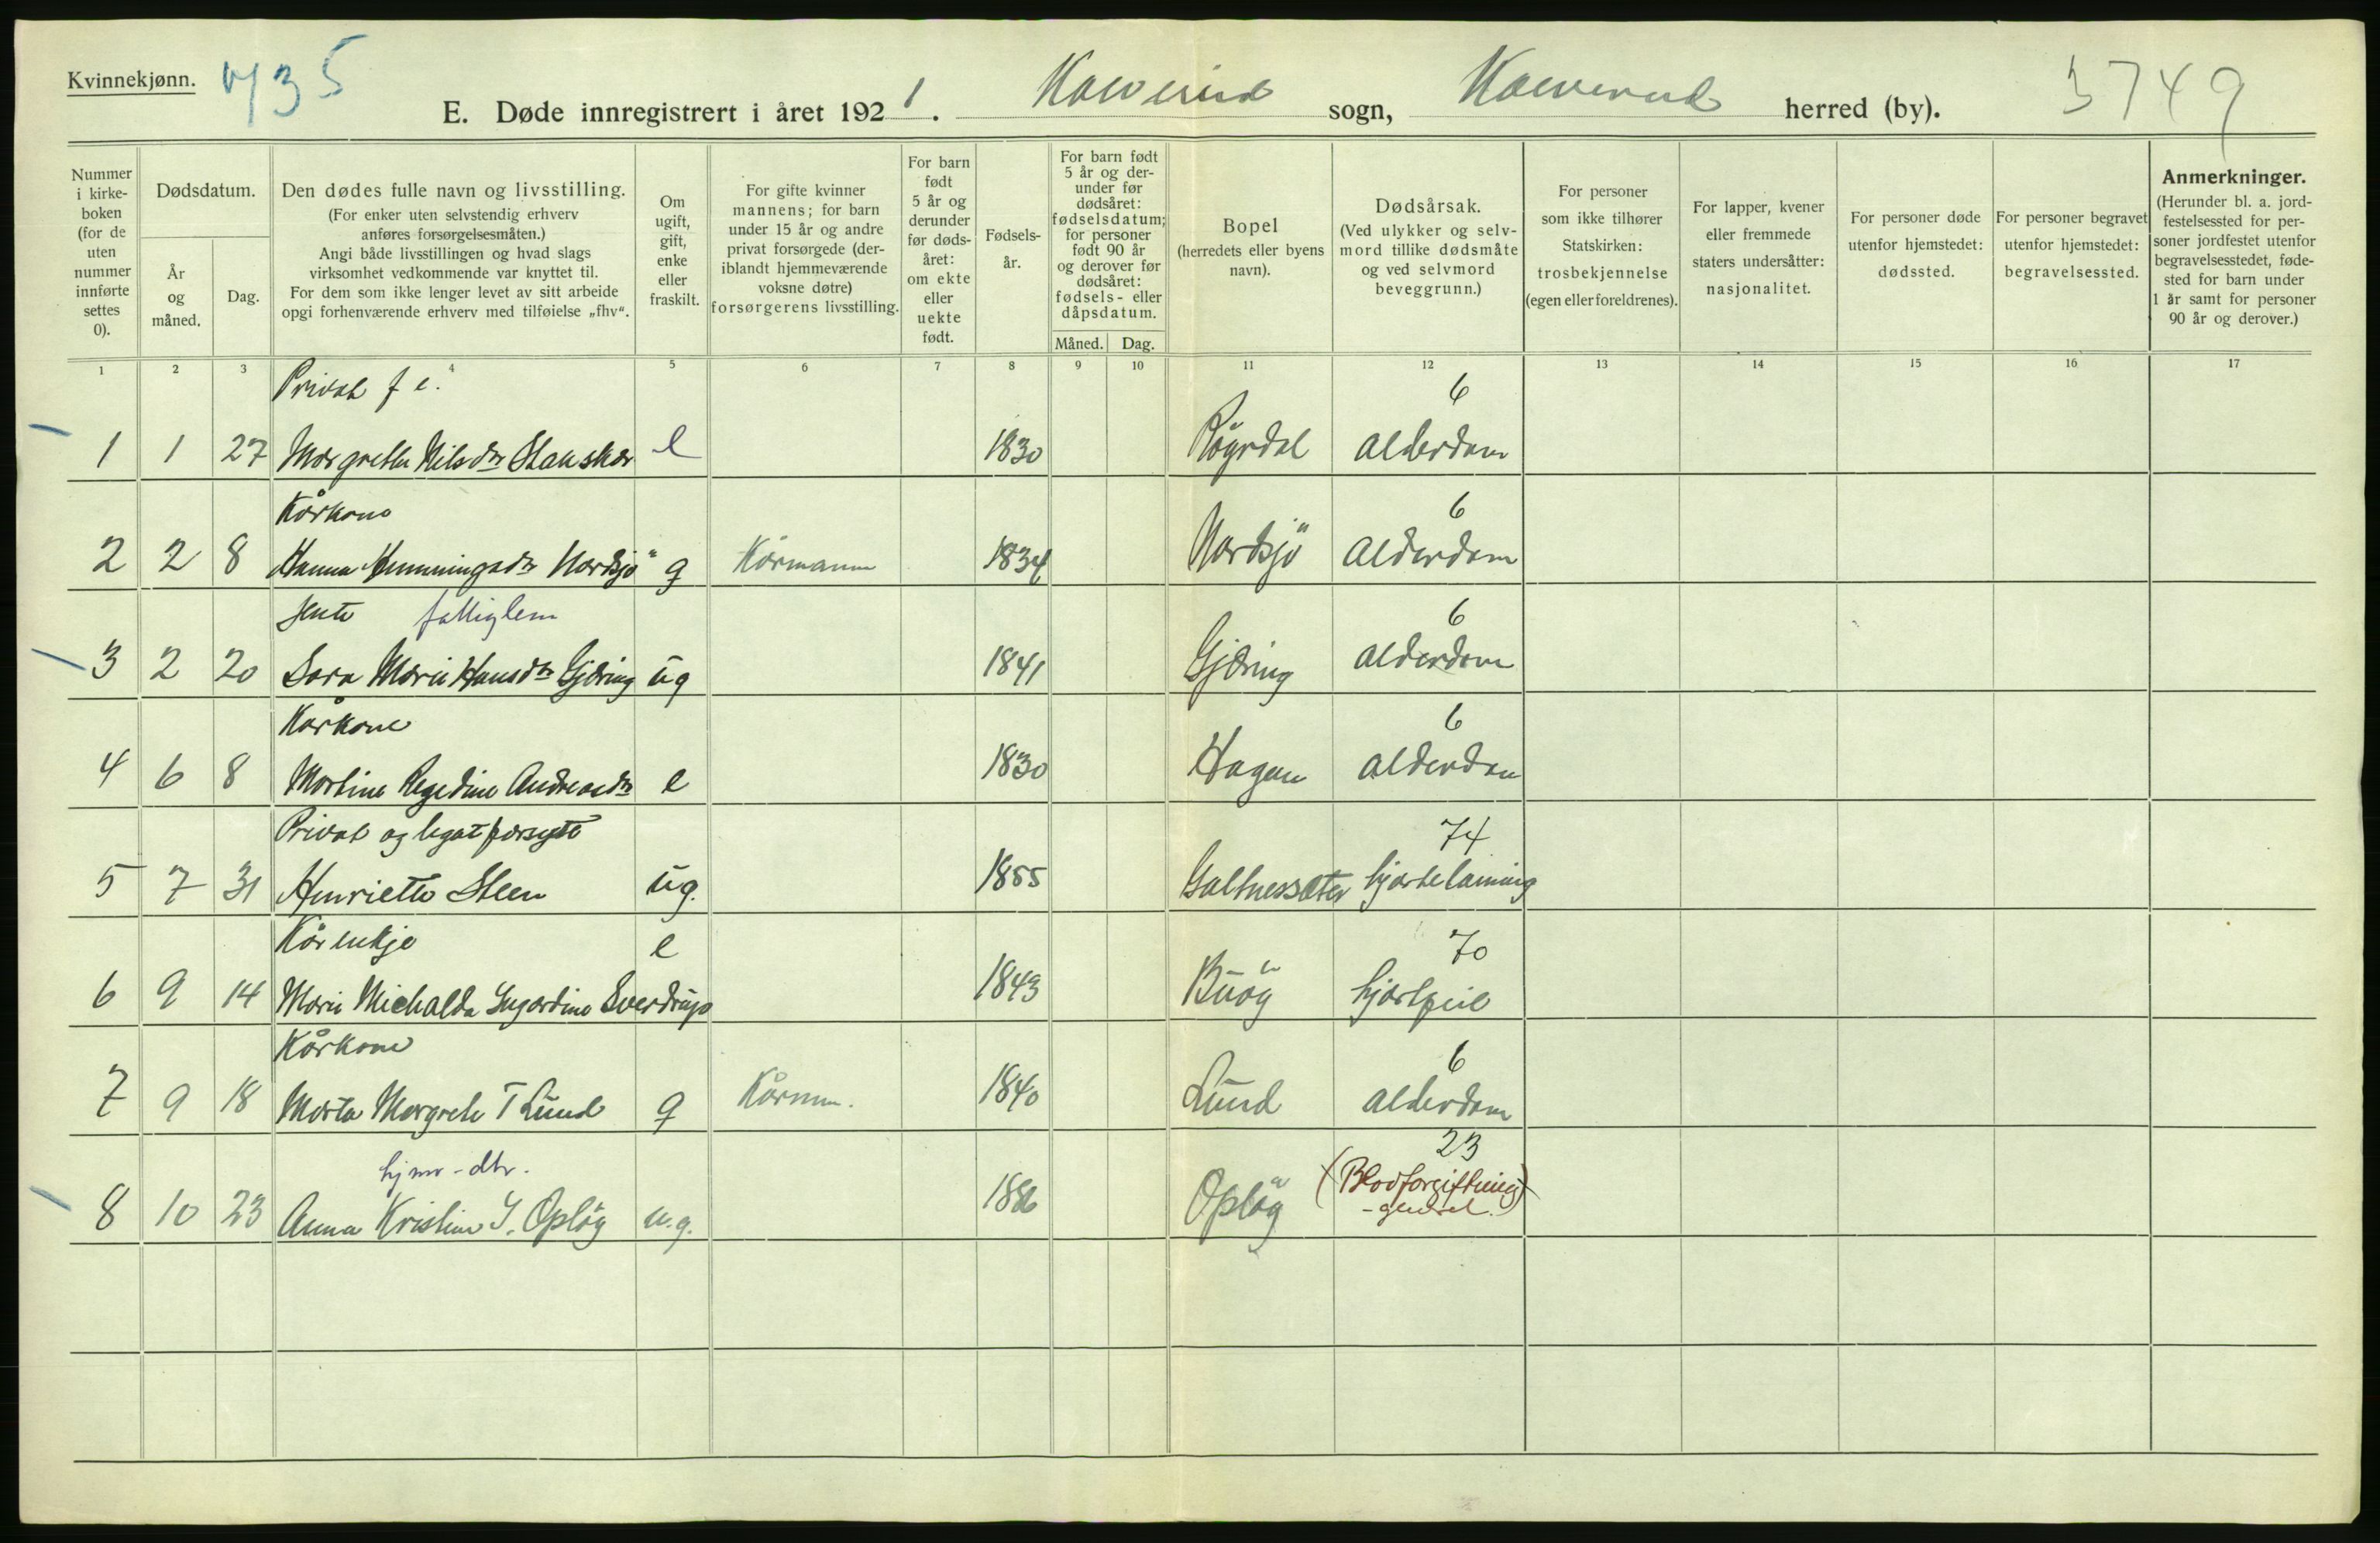 Kvinnekjønn.
435
E. Døde innregistrert i året 1921. Kolvereid sogn, Kolvereid herred (by).
3749
Nummer i kirke- boken (for de uten nummer innførte settes 0).
Dødsdatum.
År og måned.
Dag.
Den dødes fulle navn og livsstilling.
(For enker uten selvstendig erhverv
anføres forsørgelsesmåten.)
Angi både livsstillingen og hvad slags
virksomhet vedkommende var knyttet til.
For dem som ikke lenger levet av sitt arbeide
opgi forhenværende erhverv med tilføielse „fhv“.
Om ugift, gift, enke eller fraskilt.
For gifte kvinner
mannens; for barn
under 15 år og andre
privat forsørgede (der-
iblandt hjemmeværende
voksne døtre)
forsørgerens livsstilling.
For barn født 5 år og derunder før døds- året: om ekte eller uekte født.
Fødsels- år.
For barn født
5 år og der-
under før
dødsåret:
fødselsdatum;
for personer
født 90 år
og derover før
dødsåret:
fødsels- eller
dåpsdatum.
Måned. Dag.
Bopel
(herredets eller byens
navn).
Dødsårsak.
(Ved ulykker og selv-
mord tillike dødsmåte
og ved selvmord
beveggrunn.)
For personer
som ikke tilhører
Statskirken:
trosbekjennelse
(egen eller foreldrenes).
For lapper, kvener
eller fremmede
staters undersåtter:
nasjonalitet.
For personer døde
utenfor hjemstedet:
dødssted.
For personer begravet
utenfor hjemstedet:
begravelsessted.
Anmerkninger.
(Herunder bl. a. jord-
festelsessted for per-
soner jordfestet utenfor
begravelsesstedet, føde-
sted for barn under
1 år samt for personer
90 år og derover.)
1 2 3 4 5 6 7 8 9 10 11 12 13 14 15 16 17
Privat f e. 6
1 1 27 Margrethe Nilsdtr e 1830 Röyrdal alderdom
Kårkone 6
2 2 8 Hanna Hemmingsdtr Nordsjö g Kårmann 1834 Nordsjö alderdom
Jente fattiglem 6
3 2 20 Sara Marie Hansdtr Gjöring ug 1841 Gjöring alderdom
Kårkone 6
4 6 8 Martina Regedine Andreasdtr e 1830 Hagan alderdom
Privat og legatforsygte 74
5 7 31 Henriette Steen ug. 1855 Galtnessæter hjertelaming
Kårenkje e 70
6 9 14 Marie Michalda Sverdrup 1843 Buöy hjertfeil
Kårkone 6
7 9 18 Marta Margrete T Lund g Kårm. 1840 Lund alderdom
hjmv-dtr. 23
8 10 23 Anna Kristine J. Oplöy u.g. 1886 Oplöy (Blodforgiftning)